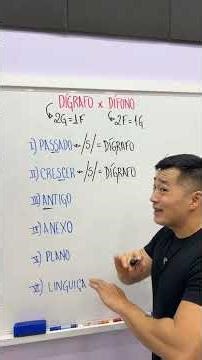 DÍGRAFO x DÍFONO
2G=1F 2F=1G
I) PASSADO /S/=DÍGRAFO
II) CRESCER /S/=DÍGRAFO
III) ANTIGO
IV) ANEXO
V) PLANO
VI) LINGUIÇA